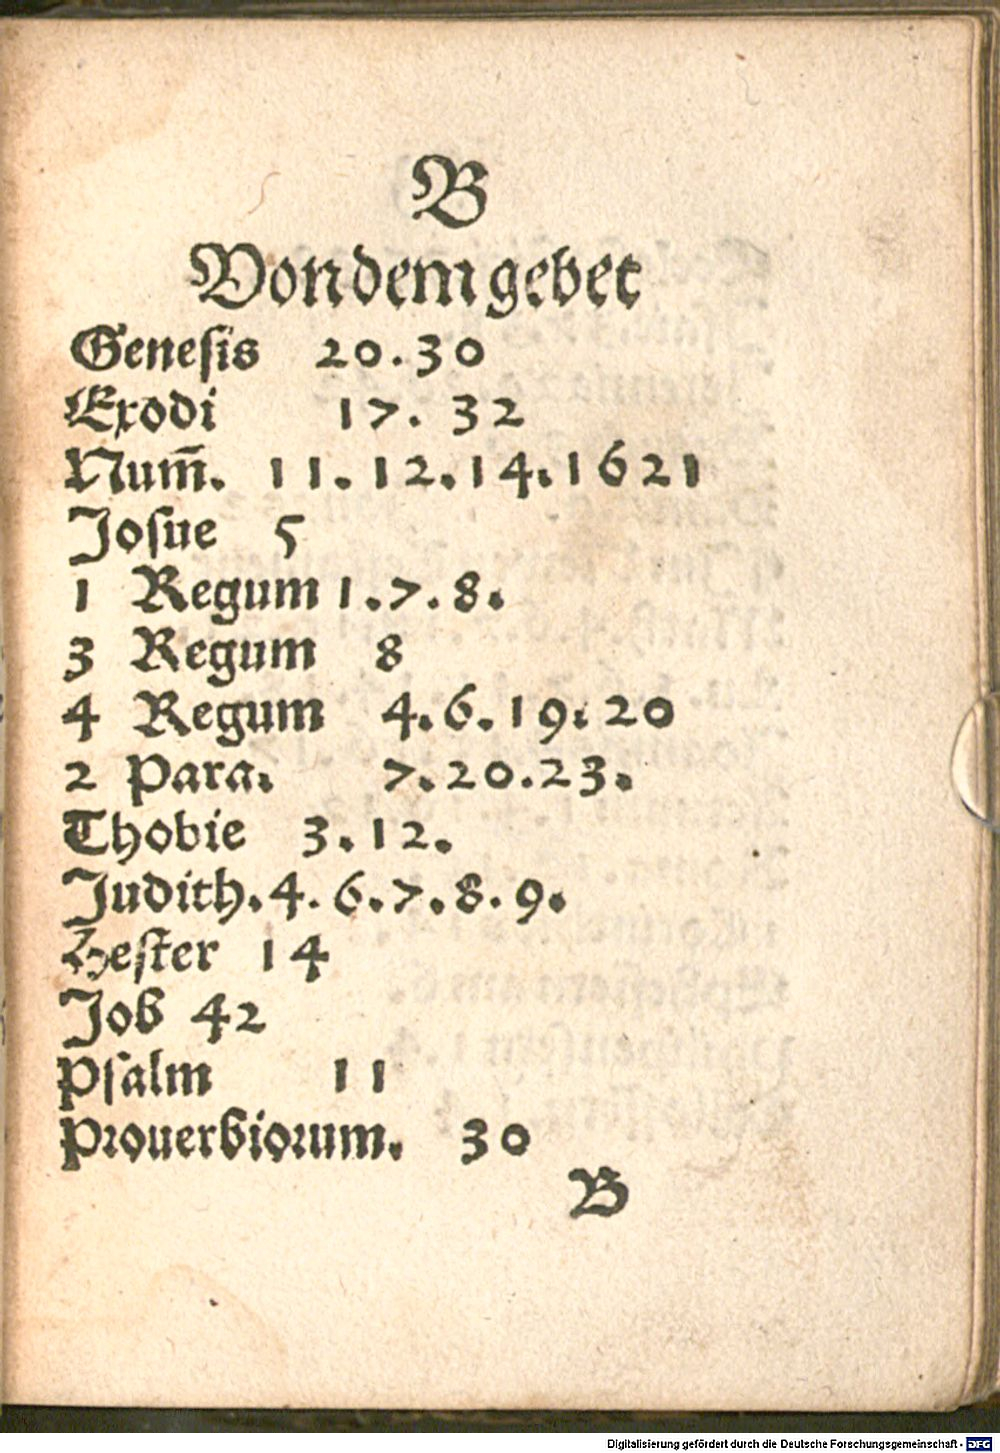 B
Von dem gebet
Geneſis 20.30
Exodi 17. 32
Num̄. 11.12.14.1621
Joſue 5
1 Regum 1.7.8.
3 Regum 8
4 Regum 4.6.19.20
2 Para. 7.20.23.
Thobie 3.12.
Judith.4.6.7.8.9.
Heſter 14
Job 42
Pſalm 11
Prouerbiorum. 30
B
Digitalisierung gefördert durch die Deutsche Forschungsgemeinschaft - DFG